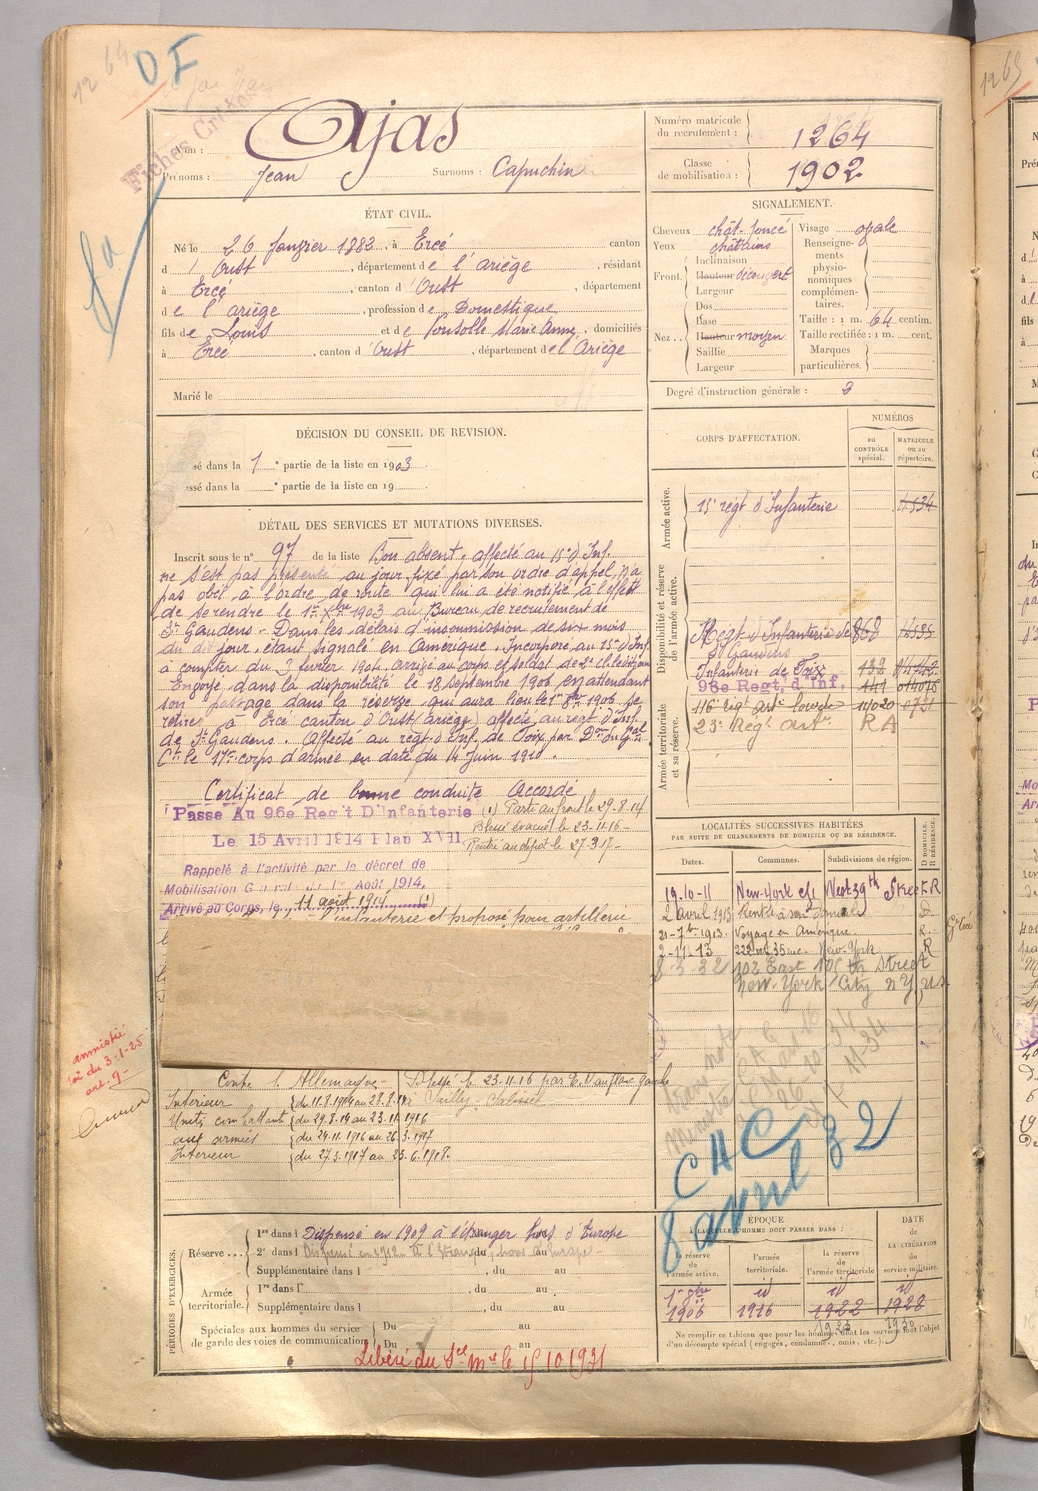 1264
DF
Fiches Croix
Nom : Ajas
Prénoms : Jean Surnoms : Capuchin
Numéro matricule du recrutement : 1264
Classe de mobilisation : 1902
ÉTAT CIVIL.
Né le 26 janvier 1882, à Ercé canton
d' Oust, département de l'ariège, résidant
à Ercé, canton d'Oust, département
de l'ariège, profession de Domestique
fils de Louis et de Marie Anne, domiciliés
à Ercé, canton d'Oust, département de l'Ariège
Marié le
SIGNALEMENT.
Cheveux chât. foncé
Yeux chatains
Front. Inclinaison
Hauteur découvert
Largeur
Nez. Dos
Base
Hauteur moyen
Saillie
Largeur
Visage ovale
Renseignements physionomiques complémentaires.
Taille : 1 m. 64 centim.
Taille rectifiée : 1 m. cent.
Marques particulières.
Degré d'instruction générale : 3
DÉCISION DU CONSEIL DE REVISION.
sé dans la 1e partie de la liste en 1903
ssé dans la e partie de la liste en 19
DÉTAIL DES SERVICES ET MUTATIONS DIVERSES.
Inscrit sous le n° 97 de la liste Bon absent, affecté au 15e d'Inf.
ne s'est pas présenté au jour fixé par son ordre d'appel, n'a
pas obéi à l'ordre de route qui lui a été notifié à l'effet
de se rendre le 1er Xbre 1903 au Bureau de recrutement de
St Gaudens. Dans les délais d'insoumission de six mois
du dit jour, étant signalé en Amérique. Incorporé au 15e d'Inf
à compter du 3 février 1904, arrivé au corps et soldat de 2e cl le dit jour
Envoyé dans la disponibilité le 18 septembre 1906 en attendant
son passage dans la réserve qui aura lieu le 1er 8bre 1906 se
retire à Ercé canton d'Oust (ariège) affecté au régt d'Inf.
de St Gaudens. Affecté au régt d'Inf. de Foix par Don du Gal
Ct le 17e corps d'armée en date du 14 Juin 1910.
Certificat de bonne conduite Accordé
Passé Au 96e Regt D'Infanterie
Le 15 Avril 1914 Plan XVII
(1) Parti au front le 29.8.14
Blessé évacué le 23-11-16
Rentré au dépôt le 27-3-17
Rappelé à l'activité par le décret de
Mobilisation Général du 1er Août 1914.
Arrivé au Corps, le 11 août 1914 (1)
l'infanterie et proposé pour artillerie
amnistié
loi du 3-1-25
art. 9
Contre l'Allemagne
Intérieur du 11.8.1914 au 28.8.14
Unité combattante du 29.8.14 au 23.11.1916
aux armées du 24.11.1916 au 26.3.1917
Intérieur du 27.3.1917 au 23.6.1918.
Blessé le 23.11.16 par E. O au flanc gauche
à Sailly-Saillisel
CORPS D'AFFECTATION.
NUMÉROS
au CONTRÔLE spécial.
MATRICULE ou au répertoire.
Armée active.
15e régt d'Infanterie 4534
Disponibilité et réserve de l'armée active.
Regt d'Infanterie de St Gaudens 868
Infanterie de Foix 132
96e Regt, d'Inf. 141
Armée territoriale et sa réserve.
116e régt artie lourde 11020
23e Régt artie RA
LOCALITÉS SUCCESSIVES HABITÉES
PAR SUITE DE CHANGEMENTS DE DOMICILE OU DE RÉSIDENCE.
Dates. Communes. Subdivisions de région. D DOMICILE. R RÉSIDENCE.
19.10-11 New-York City West 39th Street R
2 avril 1913 Rentré à son domicile D
21-7bre 1913 Voyage en Amérique. R
2-11-13 222 35 rue New-York R
8-3-32 102 East 106th Street
New-York City N Y, us
CAC
8 avril 32
PÉRIODES D'EXERCICES.
Réserve... 1re dans l Dispensé en 1909 à l'étranger hors d'Europe
2e dans l Dispensé en 1912 à l'étranger, hors Europe
Supplémentaire dans l , du au
Armée territoriale. 1re dans l' , du au
Supplémentaire dans l , du au
Spéciales aux hommes du service de garde des voies de communication Du au
Du au
Libéré du Sce Mre le 15 10 1931
ÉPOQUE
À LAQUELLE L'HOMME DOIT PASSER DANS :
la réserve de l'armée active. l'armée territoriale. la réserve de l'armée territoriale
DATE de LA LIBÉRATION du service militaire.
1er 8bre 1906 id 1916 id 1922 id 1928
1930
Ne remplir ce tableau que pour les hommes dont les services font l'objet
d'un décompte spécial (engagés, condamnés, omis, etc.)